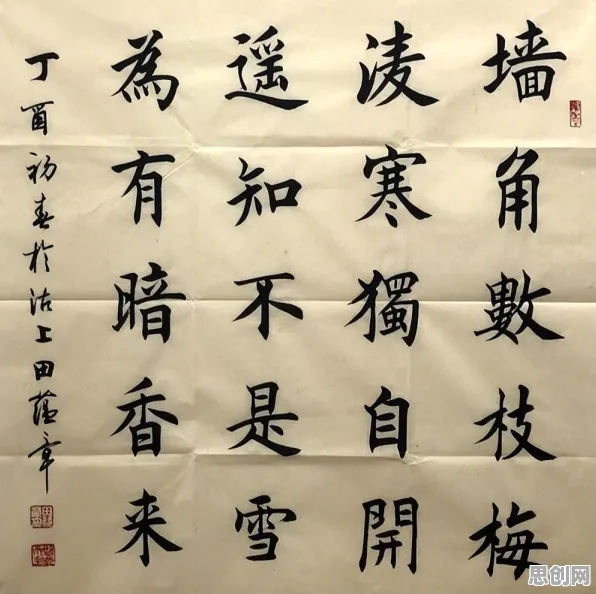 墙角數枝梅
凌寒獨自開
遥知不是雪
為有暗香来
丁酉初春於沽上田蕴章
思创网